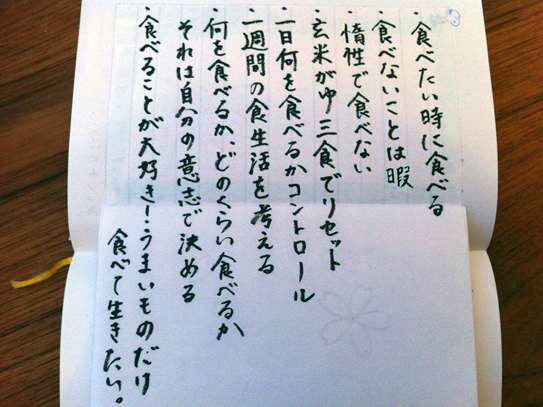 ・食べたい時に食べる
・食べないことは暇
・惰性で食べない
・玄米がゆ三食でリセット
・一日何を食べるかコントロール
・一週間の食生活を考える
・何を食べるか、どのくらい食べるか
それは自分の意志で決める
・食べることが大好き!うまいものだけ
食べて生きたい。